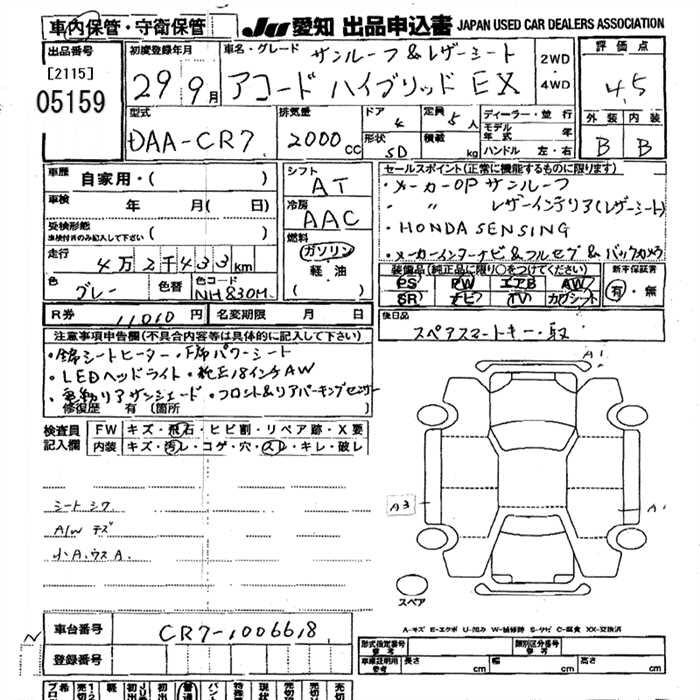 車内保管・守衛保管
JU 愛知 出品申込書 JAPAN USED CAR DEALERS ASSOCIATION
出品番号
[2115]
05159
初度登録年月
29 9月
車名・グレード サンルーフ&レザーシート
アコード ハイブリッド EX
2WD
4WD
評価点
4.5
外装 内装
B B
型式
DAA-CR7
排気量
2000cc
ドア 4
形状 5D
定員 5人
積載 kg
ディーラー・並行
モデル年式 年
ハンドル 左・右
車歴
自家用・( )
車検 年 月( 日)
受検形態
車検付のみ記入して下さい ( )
走行
4万2千433km
色
グレー
色替
色コード
NH830M
シフト
AT
冷房
AAC
燃料
ガソリン
軽油
( )
セールスポイント(正常に機能するものに限ります)
・メーカーOP サンルーフ
・ 〃 レザーインテリア(レザーシート)
・HONDA SENSING
・メーカーインターナビ&フルセグ&バックカメラ
装備品(純正品に限り○をつけてください)
PS PW エアB AW
SR ナビ TV カワシート
新車保証書
有・無
R券 11010円
名変期限 月 日
後日品
スペアスマートキー・取
注意事項申告欄(不具合内容等は具体的に記入して下さい)
・全席シートヒーター・F席パワーシート
・LEDヘッドライト・純正18インチAW
・電動リアサンシェード・フロント&リアパーキングセンサー
修復歴 有 〔箇所 〕
検査員記入欄
FW キズ・飛石・ヒビ割・リペア跡・X要
内装 キズ・汚レ・コゲ・穴・スレ・キレ・破レ
シートシワ
A/W キズ
小A.ウスA.
A1
A3
A1
スペア
A-キズ E-エクボ U-凹み W-補修跡 S-サビ C-腐食 XX-交換済
車台番号
CR7-1006618
登録番号
形式指定番号
参考
類別区分番号
参考
車庫証明用参考
長さ cm
幅 cm
高さ cm